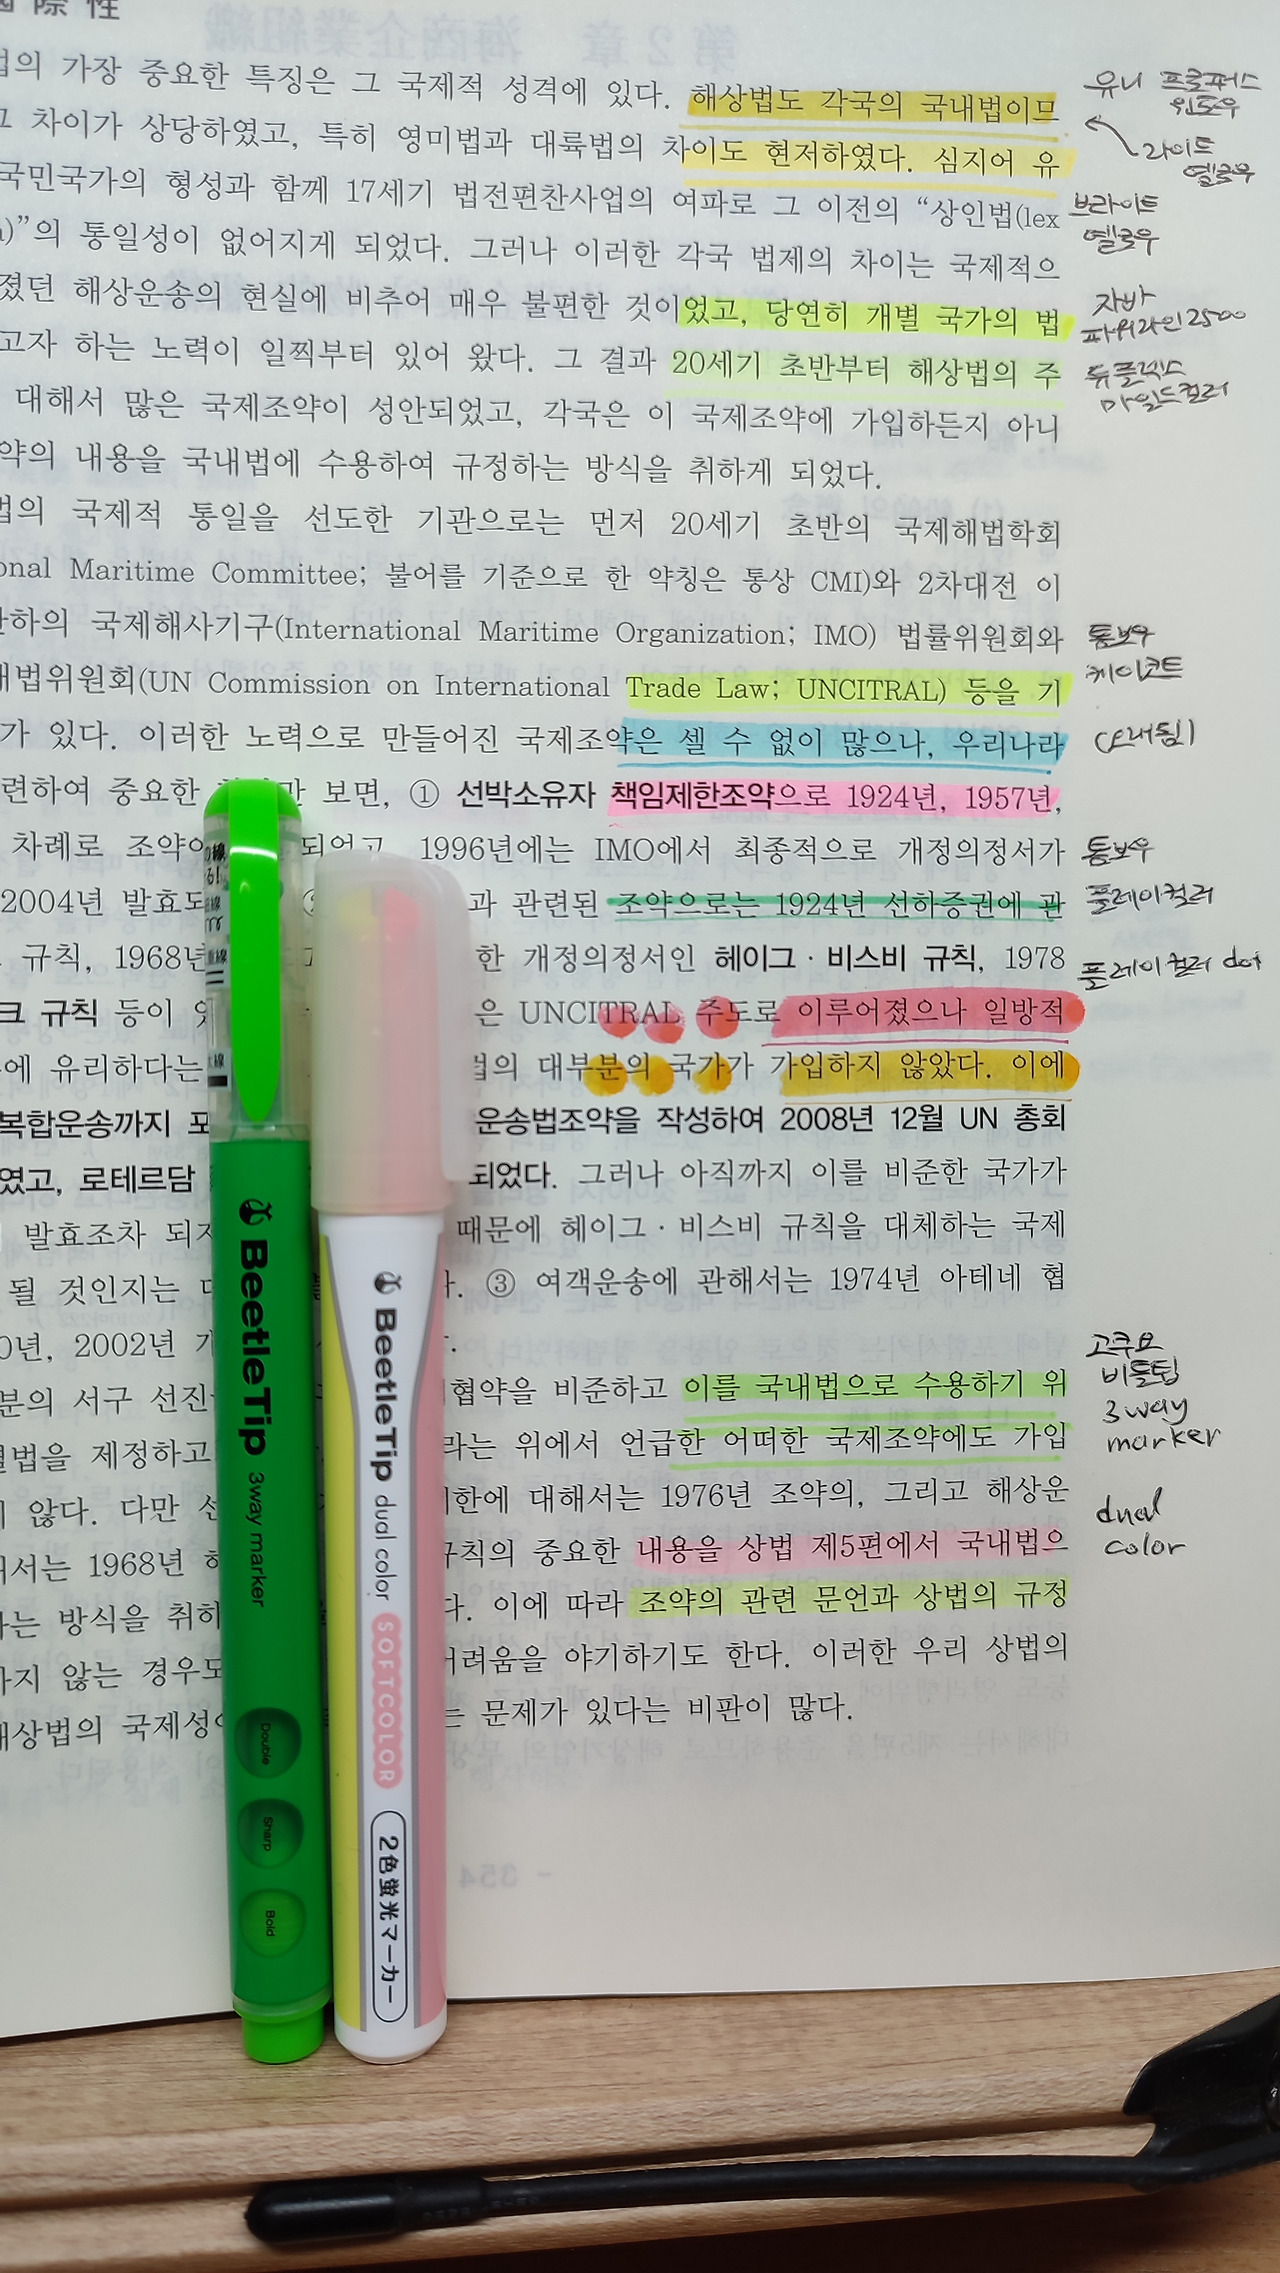 國際性
법의 가장 중요한 특징은 그 국제적 성격에 있다. 해상법도 각국의 국내법이므
그 차이가 상당하였고, 특히 영미법과 대륙법의 차이도 현저하였다. 심지어 유
국민국가의 형성과 함께 17세기 법전편찬사업의 여파로 그 이전의 “상인법(lex
a)”의 통일성이 없어지게 되었다. 그러나 이러한 각국 법제의 차이는 국제적으
졌던 해상운송의 현실에 비추어 매우 불편한 것이었고, 당연히 개별 국가의 법
고자 하는 노력이 일찍부터 있어 왔다. 그 결과 20세기 초반부터 해상법의 주
대해서 많은 국제조약이 성안되었고, 각국은 이 국제조약에 가입하든지 아니
약의 내용을 국내법에 수용하여 규정하는 방식을 취하게 되었다.
법의 국제적 통일을 선도한 기관으로는 먼저 20세기 초반의 국제해법학회
onal Maritime Committee; 불어를 기준으로 한 약칭은 통상 CMI)와 2차대전 이
산하의 국제해사기구(International Maritime Organization; IMO) 법률위원회와
래법위원회(UN Commission on International Trade Law; UNCITRAL) 등을 기
가 있다. 이러한 노력으로 만들어진 국제조약은 셀 수 없이 많으나, 우리나라
련하여 중요한 만 보면, ① 선박소유자 책임제한조약으로 1924년, 1957년,
차례로 조약이 되었고 1996년에는 IMO에서 최종적으로 개정의정서가
2004년 발효되 과 관련된 조약으로는 1924년 선하증권에 관
규칙, 1968년 한 개정의정서인 헤이그·비스비 규칙, 1978
크 규칙 등이 있 은 UNCITRAL 주도로 이루어졌으나 일방적
에 유리하다는 법의 대부분의 국가가 가입하지 않았다. 이에
복합운송까지 포 운송법조약을 작성하여 2008년 12월 UN 총회
였고, 로테르담 되었다. 그러나 아직까지 이를 비준한 국가가
발효조차 되지 때문에 헤이그·비스비 규칙을 대체하는 국제
될 것인지는 다. ③ 여객운송에 관해서는 1974년 아테네 협
0년, 2002년 개
분의 서구 선진 협약을 비준하고 이를 국내법으로 수용하기 위
별법을 제정하고 라는 위에서 언급한 어떠한 국제조약에도 가입
지 않다. 다만 선 제한에 대해서는 1976년 조약의, 그리고 해상운
해서는 1968년 헤 규칙의 중요한 내용을 상법 제5편에서 국내법으
하는 방식을 취하 다. 이에 따라 조약의 관련 문언과 상법의 규정
하지 않는 경우도 어려움을 야기하기도 한다. 이러한 우리 상법의
해상법의 국제성 는 문제가 있다는 비판이 많다.
유니 프로퍼스
윈도우
라이트
옐로우
브라이트
옐로우
자바
파워라인2500
듀플렉스
마일드컬러
톰보우
케이코트
(오래됨)
톰보우
플레이컬러
플레이컬러 dot
고쿠요
비틀팁
3way
marker
dual
color
BeetleTip 3way marker
Double
Sharp
Bold
BeetleTip dual color SOFTCOLOR
2色蛍光マーカー